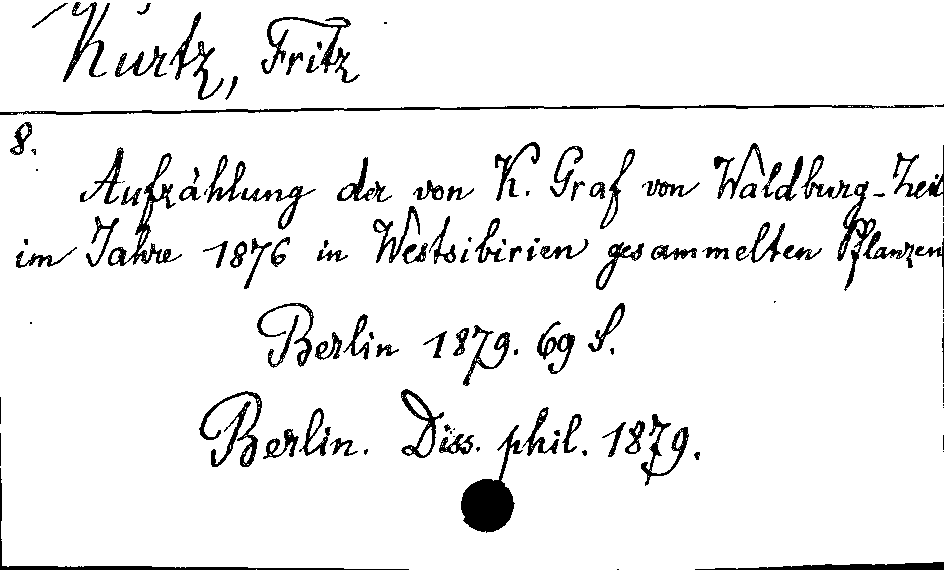 Kurtz, Fritz
8.
Aufzählung der von K. Graf von Waldburg-Zeil
im Jahre 1876 in Westsibirien gesammelten Pflanzen
Berlin 1879. 69 S.
Berlin. Diss. phil. 1879.